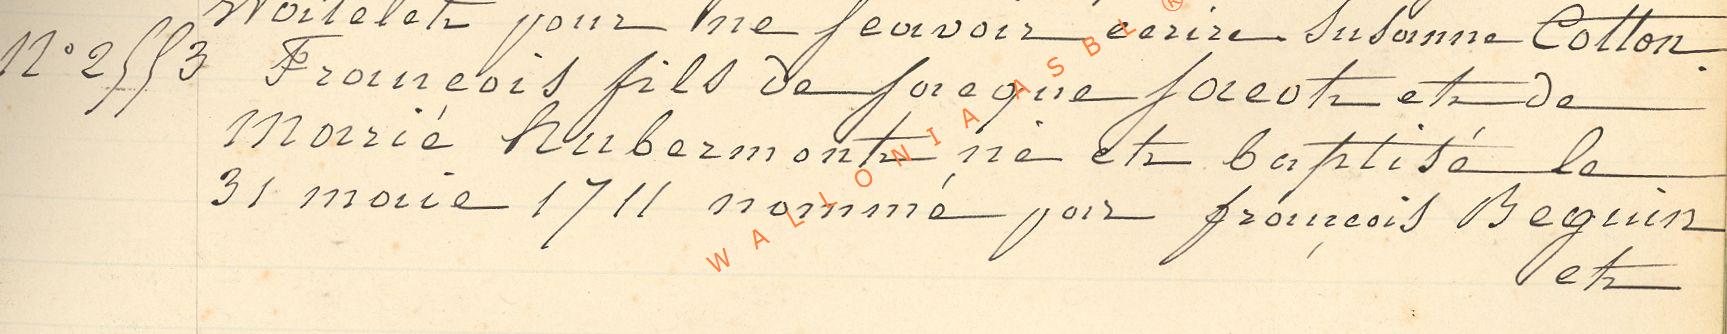 Woitelet pour ne scavoir ecrire Susanne Cotton.
N° 2553 François fils de Jacque Jacot et de
Marie hubermont né et baptisé le
31 maie 1711 nommé par françois Beguin
et
WALLONIA ASBL ®